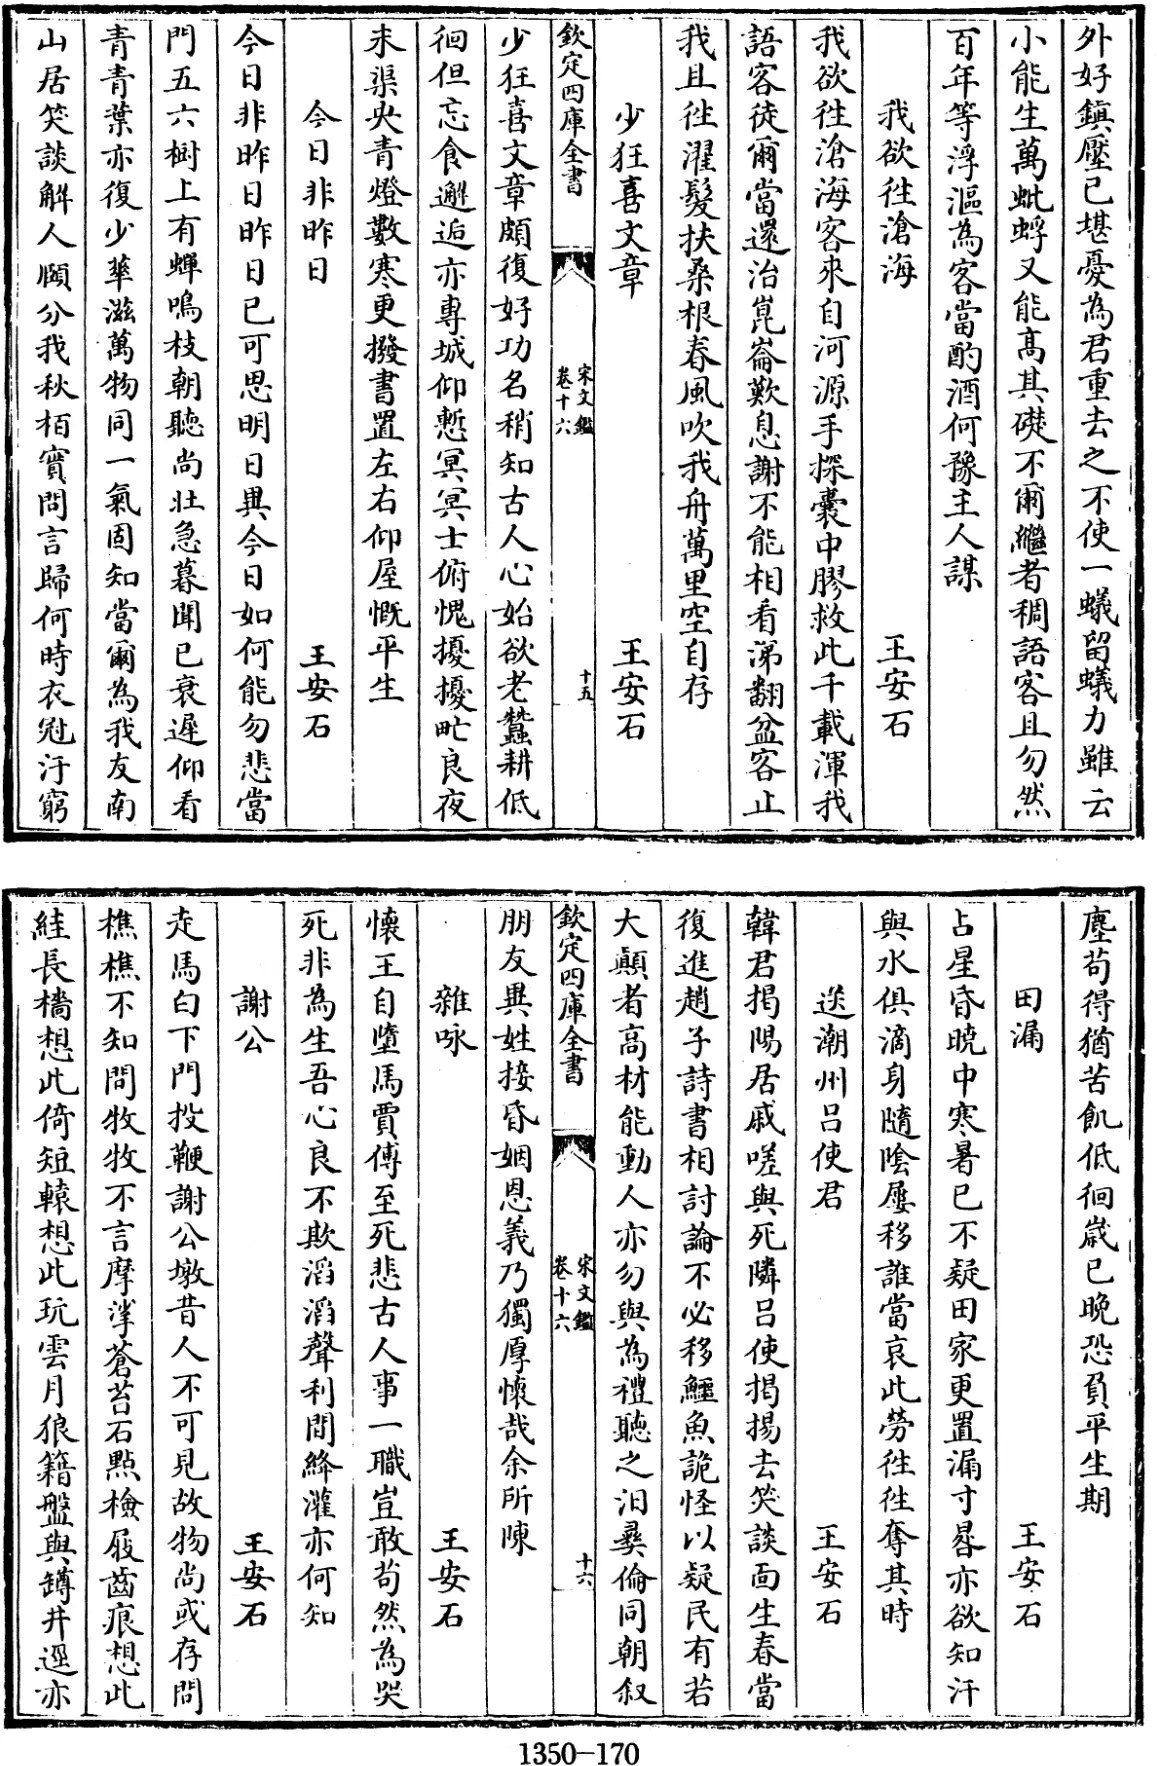 外好鎮壓已堪憂為君重去之不使一蟻留蟻力雖云
小能生萬蚍蜉又能高其礎不爾繼者稠語客且勿然
百年等浮漚為客當酌酒何豫主人謀
我欲往滄海 王安石
我欲往滄海客來自河源手探囊中膠救此千載渾我
語客徒爾當還治崑崙歎息謝不能相看涕翻盆客止
我且往濯髮扶桑根春風吹我舟萬里空自存
少狂喜文章 王安石
欽定四庫全書 宋文鑑 卷十六 十五
少狂喜文章頗復好功名稍知古人心始欲老蠶耕低
徊但忘食邂逅亦專城仰慙冥冥士俯愧擾擾甿良夜
未渠央青燈數寒更撥書置左右仰屋慨平生
今日非昨日 王安石
今日非昨日昨日已可思明日異今日如何能勿悲當
門五六樹上有蟬鳴枝朝聽尚壯急暮聞已衰遲仰看
青青葉亦復少華滋萬物同一氣固知當爾為我友南
山居笑談解人頤分我秋栢實問言歸何時衣冠汙窮
塵苟得猶苦飢低徊歲已晚恐負平生期
田漏 王安石
占星昏曉中寒暑已不疑田家更置漏寸晷亦欲知汗
與水俱滴身隨陰屢移誰當哀此勞往往奪其時
送潮州呂使君 王安石
韓君揭陽居戚嗟與死隣呂使揭揚去笑談面生春當
復進趙子詩書相討論不必移鱷魚詭怪以疑民有若
大顛者高材能動人亦勿與為禮聽之汨彝倫同朝叙
欽定四庫全書 宋文鑑 卷十六 十六
朋友異姓接昏姻恩義乃獨厚懷哉余所陳
雜咏 王安石
懷王自墮馬賈傅至死悲古人事一職豈敢苟然為哭
死非為生吾心良不欺滔滔聲利間絳灌亦何知
謝公 王安石
走馬白下門投鞭謝公墩昔人不可見故物尚或存問
樵樵不知問牧牧不言摩挲蒼苔石點檢屐齒痕想此
絓長檣想此倚短轅想此玩雲月狼籍盤與罇井逕亦
1350-170